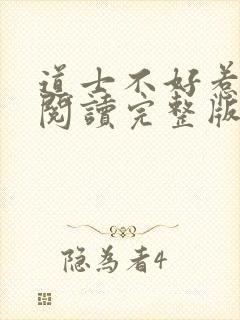 道士不好惹
閱讀完整版
隐為者4